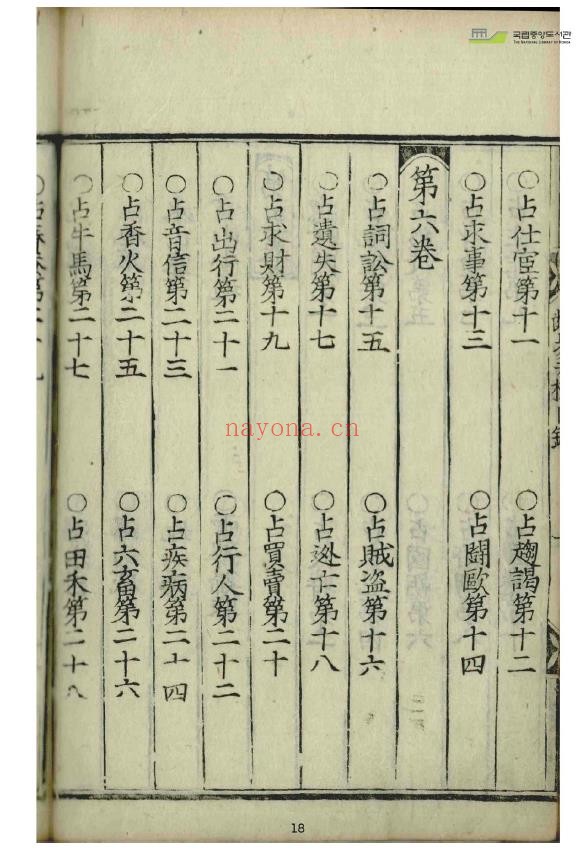 국립중앙도서관
THE NATIONAL LIBRARY OF KOREA
○占仕宦第十一 ○占趨謁第十二
○占求事第十三 ○占鬪歐第十四
第六卷
○占詞訟第十五 ○占賊盗第十六
○占遺失第十七 ○占迯亡第十八
○占求財第十九 ○占買賣第二十
○占出行第二十一 ○占行人第二十二
○占音信第二十三 ○占疾病第二十四
○占香火第二十五 ○占六畜第二十六
○占牛馬第二十七 ○占田禾第二十八
nayona.cn
18